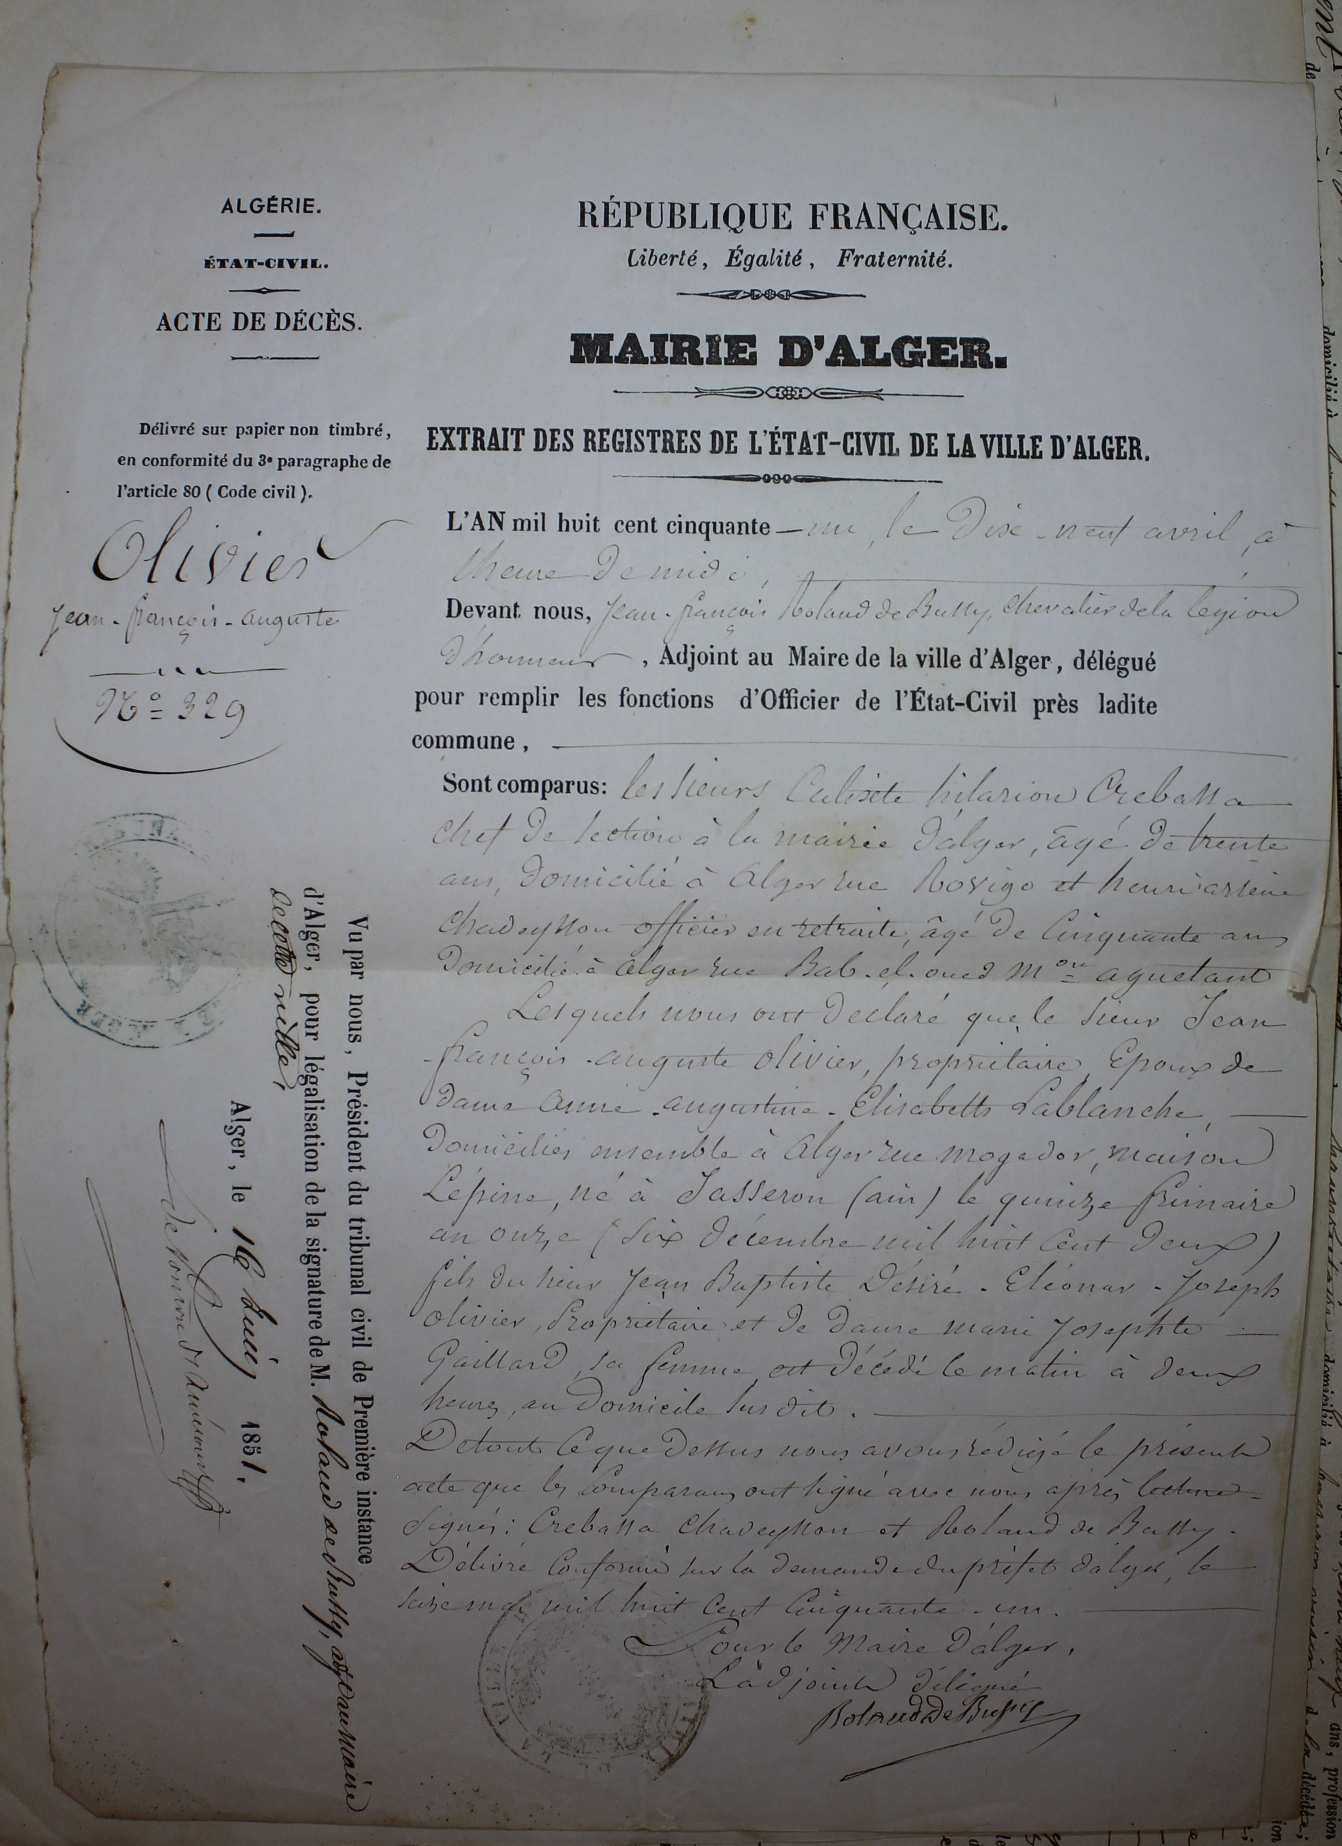 ALGÉRIE.
ÉTAT-CIVIL.
ACTE DE DÉCÈS.
Délivré sur papier non timbré,
en conformité du 3e paragraphe de
l'article 80 ( Code civil ).
Olivier
Jean-françois-auguste
No 329
RÉPUBLIQUE FRANÇAISE.
Liberté, Égalité, Fraternité.
MAIRIE D'ALGER.
EXTRAIT DES REGISTRES DE L'ÉTAT-CIVIL DE LA VILLE D'ALGER.
L'AN mil huit cent cinquante-un, le Dix-neuf avril, à
l'heure De midi,
Devant nous, Jean-françois Roland de Bussy, chevalier de la légion
D'honneur, Adjoint au Maire de la ville d'Alger, délégué
pour remplir les fonctions d'Officier de l'État-Civil près ladite
commune,
Sont comparus: les sieurs Calixte hilarion Crebassa
chef De section à la mairie D'alger, âgé De trente
ans, Domicilié à alger rue Rovigo et henri arsène
chadeysson officier en retraite, âgé De Cinquante ans
Domicilié à alger rue Bab-el-oued mon aguetant
Lesquels nous ont Declaré que le sieur Jean
françois-auguste olivier, propriétaire, Epoux de
Dame anne-augustine-Elisabeth Lablanche,
Domiciliés ensemble à alger rue mogador, maison
Lépine, né à Jasseron (ain) le quinze frimaire
an onze (Six Décembre mil huit Cent Deux)
fils du sieur Jean Baptiste Désiré-Eléonor-Joseph
olivier, Propriétaire et De Dame marie Josephte
Gaillard, sa femme est Décédé le matin à Deux
heures, au Domicile susdit.
De tout Ce que Dessus nous avons rédigé le présent
acte que les Comparans ont signé avec nous après lecture
Signés: Crebassa chadeysson et Roland de Bussy.
Délivré Conforme sur la Demande du préfet d'alger, le
seize mai mil huit Cent Cinquante-un.
Pour le Maire D'alger,
L'adjoint Délégué
Roland De Bussy
Vu par nous, Président du tribunal civil de Première instance
d'Alger, pour légalisation de la signature de M. Roland de Bussy, adjt au Maire
De cette ville,
Alger, le 16 Juin 1851.
ALGER